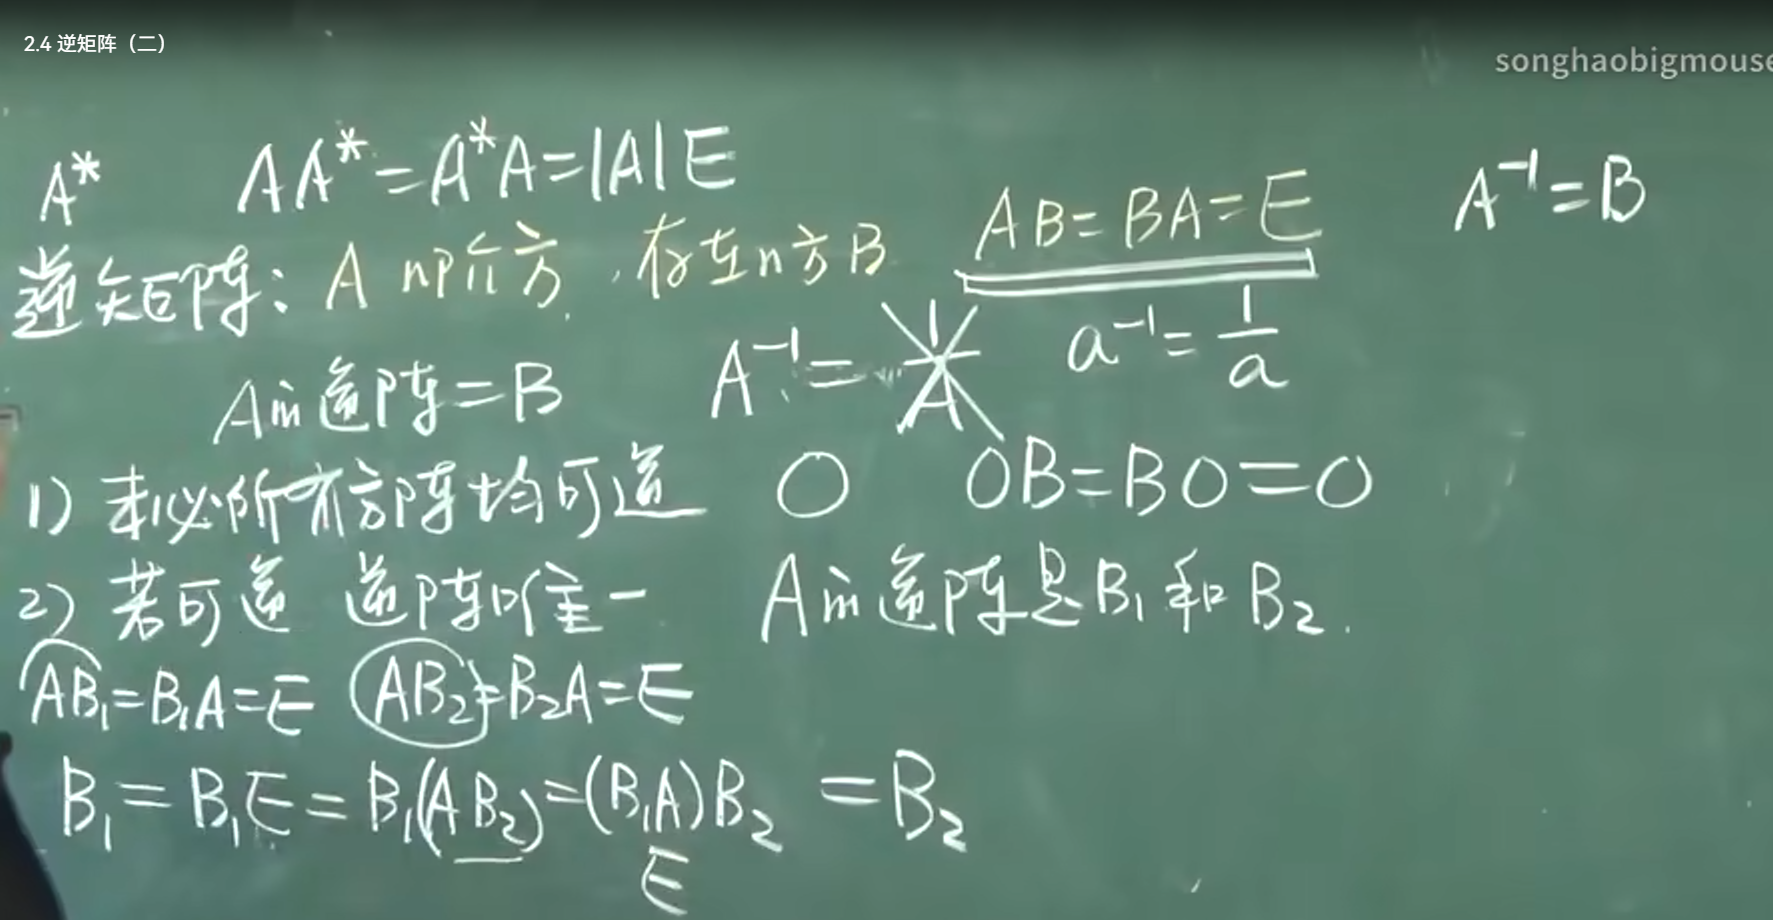 2.4 逆矩阵（二）
songhaobigmouse
A* AA*=A*A=|A|E
逆矩阵: A n阶方, 存在n方B AB=BA=E A⁻¹=B
A的逆阵=B A⁻¹= 1/A a⁻¹=1/a
1) 未必所有方阵均可逆 O OB=BO=O
2) 若可逆 逆阵唯一 A的逆阵是B₁和B₂.
AB₁=B₁A=E AB₂=B₂A=E
B₁=B₁E=B₁(AB₂)=(B₁A)B₂ =B₂
E